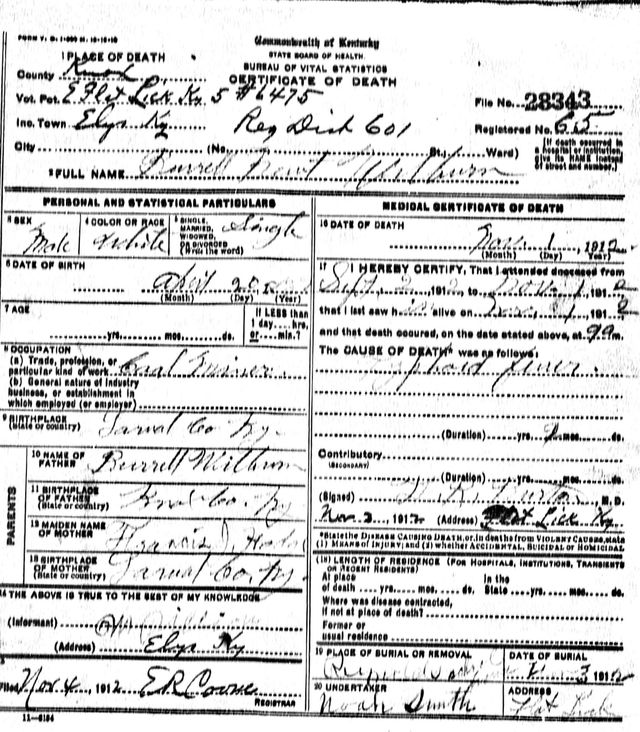 FORM V. S. 1-
Commonwealth of Kentucky
STATE BOARD OF HEALTH
BUREAU OF VITAL STATISTICS
CERTIFICATE OF DEATH
1 PLACE OF DEATH
County Knox
Vot. Pct. E Flat Lick Ky 5 #6475
File No. 28343
Inc. Town Elys Ky
Reg Dist 601
Registered No. 65
City (No. St., Ward)
[If death occurred in a hospital or institution, give its NAME instead of street and number.]
2 FULL NAME Burrell Milburn
PERSONAL AND STATISTICAL PARTICULARS
3 SEX Male
4 COLOR OR RACE White
5 SINGLE, MARRIED, WIDOWED OR DIVORCED (Write the word) Single
6 DATE OF BIRTH April 20
(Month) (Day) (Year)
7 AGE
yrs. mos. ds.
If LESS than 1 day....hrs. or....min.?
8 OCCUPATION
(a) Trade, profession, or particular kind of work Coal Miner
(b) General nature of industry business, or establishment in which employed (or employer)
9 BIRTHPLACE (State or country) Co Ky
PARENTS
10 NAME OF FATHER Burrell Milburn
11 BIRTHPLACE OF FATHER (State or country) Knox Co. Ky
12 MAIDEN NAME OF MOTHER Francis J
13 BIRTHPLACE OF MOTHER (State or country) Co Ky
14 THE ABOVE IS TRUE TO THE BEST OF MY KNOWLEDGE
(Informant)
(Address) Elys Ky
Filed Nov. 4, 1912 E R
REGISTRAR
11-6184
MEDICAL CERTIFICATE OF DEATH
16 DATE OF DEATH
Nov 1 1912
(Month) (Day) (Year)
17 I HEREBY CERTIFY, That I attended deceased from
Sept 2 1912 to Nov 1 1912
that I last saw him alive on 1912
and that death occured, on the date stated above, at 9 m.
The CAUSE OF DEATH* was as follows:
Typhoid fever
(Duration) yrs. 2 mos. ds.
Contributory
(SECONDARY)
(Duration) yrs. mos. ds.
(Signed) M. D.
Nov 2, 1912 (Address) Flat Lick Ky
*State the DISEASE CAUSING DEATH, or, in deaths from VIOLENT CAUSES, state (1) MEANS OF INJURY; and (2) whether ACCIDENTAL, SUICIDAL or HOMICIDAL.
(18) LENGTH OF RESIDENCE (FOR HOSPITALS, INSTITUTIONS, TRANSIENTS OR RECENT RESIDENTS)
At place of death yrs. mos. ds. In the State yrs. mos. ds.
Where was disease contracted, if not at place of death?
Former or usual residence
19 PLACE OF BURIAL OR REMOVAL
DATE OF BURIAL
3 1912
20 UNDERTAKER
Noah Smith
ADDRESS
Flat Lick